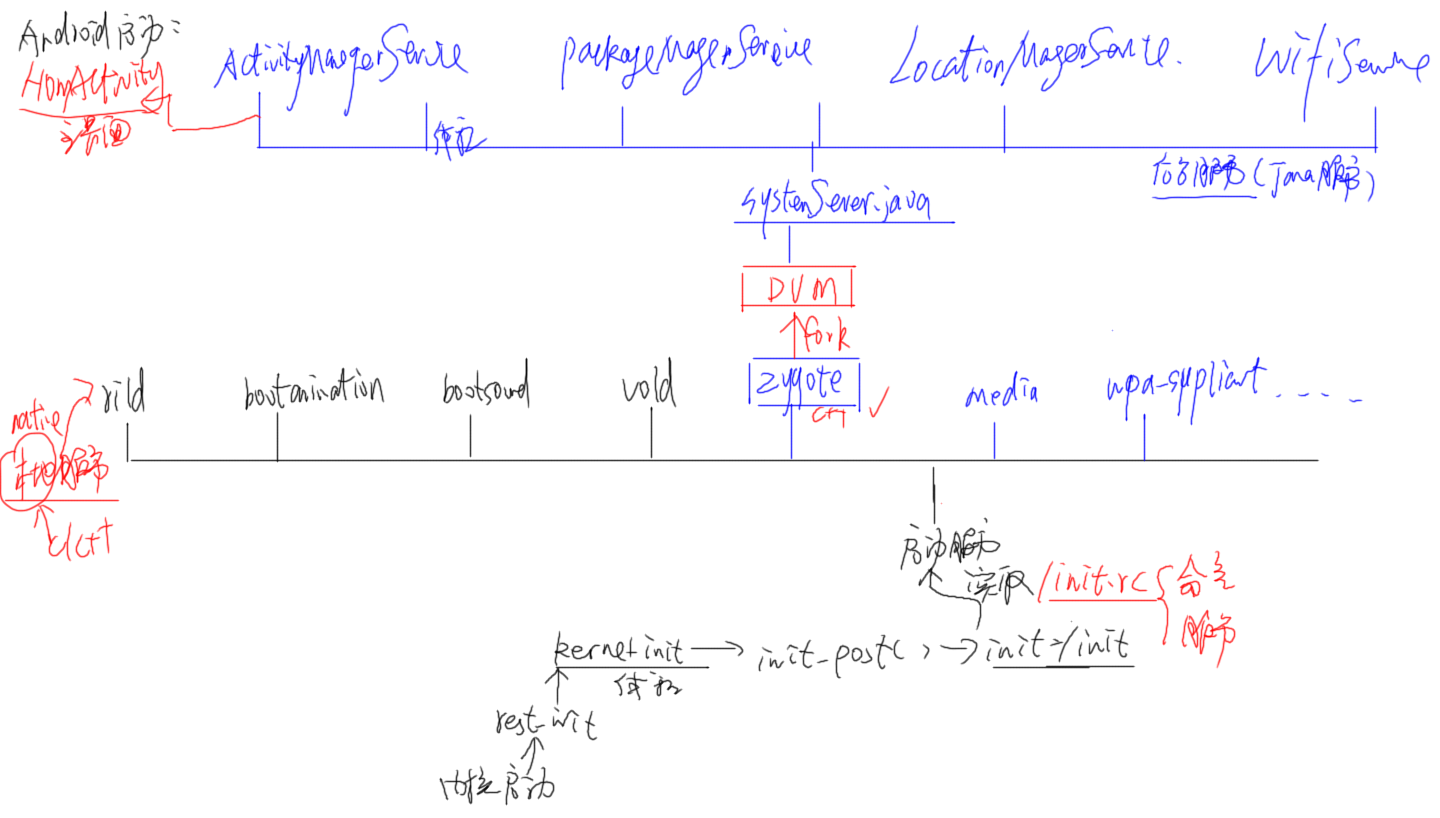 Android启动:
ActivityManagerService
packageMagerService
LocationMagerService.
WifiService
HomActivity
主界面
线程
后台服务(Java服务)
systemSever.java
DVM
fork
zygote
c++
rild
bootanination
bootsound
vold
media
wpa-suppliant ....
native
本地服务
c/c++
启动服务
读取
/init.rc
命令
服务
kernel_init
init_post()
init=/init
线程
rest_init
内核启动